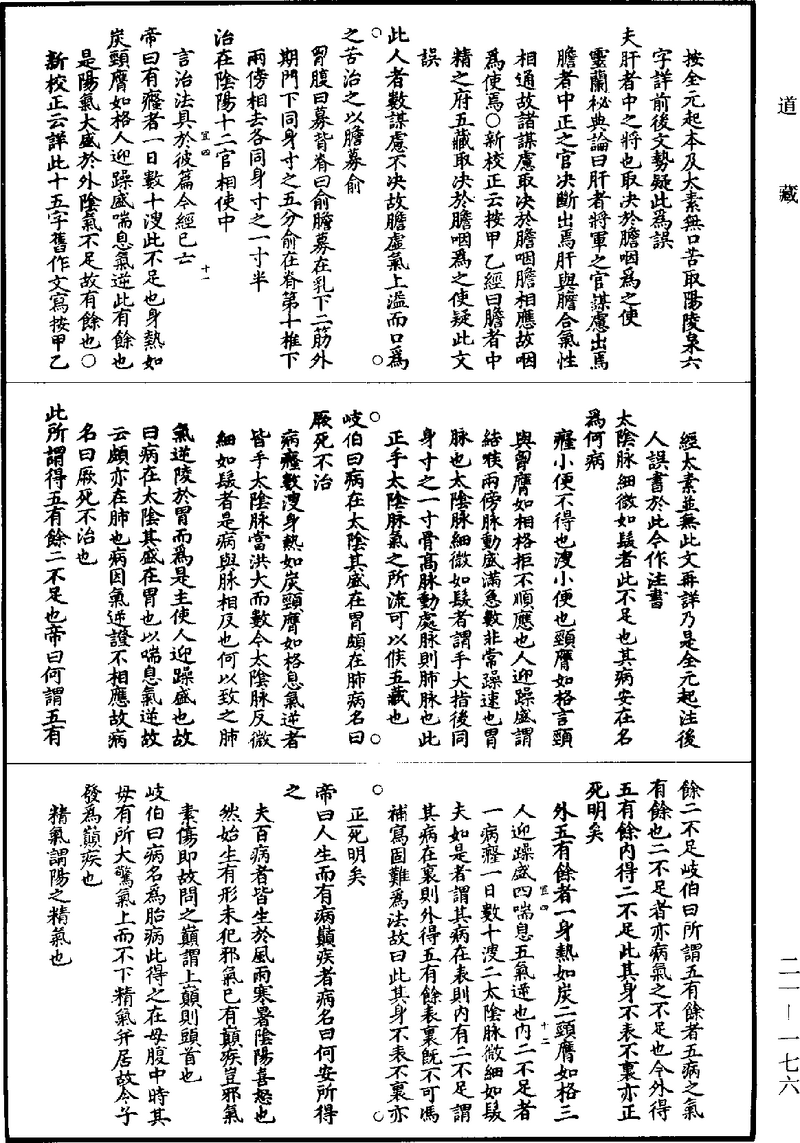 道藏
按全元起本及太素無口苦取陽陵泉六
字詳前後文勢疑此為誤
夫肝者中之將也取決於膽咽為之使
靈蘭秘典論曰肝者將軍之官謀慮出焉
膽者中正之官決斷出焉肝與膽合氣性
相通故諸謀慮取決於膽咽膽相應故咽
為使焉○新校正云按甲乙經曰膽者中
精之府五藏取決於膽咽為之使疑此文
誤
此人者數謀慮不決故膽虛氣上溢而口為
之苦治之以膽募俞
胷腹曰募背脊曰俞膽募在乳下二筋外
期門下同身寸之五分俞在脊第十椎下
兩傍相去各同身寸之一寸半
治在陰陽十二官相使中
言治法具於彼篇今經已亡
宜四 十一
帝曰有癃者一日數十溲此不足也身熱如
炭頸膺如格人迎躁盛喘息氣逆此有餘也
是陽氣大盛於外陰氣不足故有餘也○
新校正云詳此十五字舊作文寫按甲乙
經太素並無此文再詳乃是全元起注後
人誤書於此今作注書
太陰脉細微如髮者此不足也其病安在名
為何病
癃小便不得也溲小便也頸膺如格言頸
與胷膺如相格拒不順應也人迎躁盛謂
結喉兩傍脉動盛滿急數非常躁速也胃
脉也太陰脉細微如髮者謂手大指後同
身寸之一寸骨高脉動處脉則肺脉也此
正手太陰脉氣之所流可以候五藏也
岐伯曰病在太陰其盛在胃頗在肺病名曰
厥死不治
病癃數溲身熱如炭頸膺如格息氣逆者
皆手太陰脉當洪大而數今太陰脉反微
細如髮者是病與脉相反也何以致之肺
氣逆陵於胃而為是主使人迎躁盛也故
曰病在太陰其盛在胃也以喘息氣逆故
云頗亦在肺也病因氣逆證不相應故病
名曰厥死不治也
此所謂得五有餘二不足也帝曰何謂五有
餘二不足岐伯曰所謂五有餘者五病之氣
有餘也二不足者亦病氣之不足也今外得
五有餘內得二不足此其身不表不裏亦正
死明矣
外五有餘者一身熱如炭二頸膺如格三
人迎躁盛四喘息五氣逆也內二不足者
宜四 十二
一病癃一日數十溲二太陰脉微細如髮
夫如是者謂其病在表則內有二不足謂
其病在裏則外得五有餘表裏既不可馮
補瀉固難為法故曰此其身不表不裏亦
正死明矣
帝曰人生而有病巔疾者病名曰何安所得
之
夫百病者皆生於風雨寒暑陰陽喜怒也
然始生有形未犯邪氣已有巔疾豈邪氣
素傷即故問之巔謂上巔則頭首也
岐伯曰病名為胎病此得之在母腹中時其
母有所大驚氣上而不下精氣并居故令子
發為巔疾也
精氣謂陽之精氣也
二一—一七六